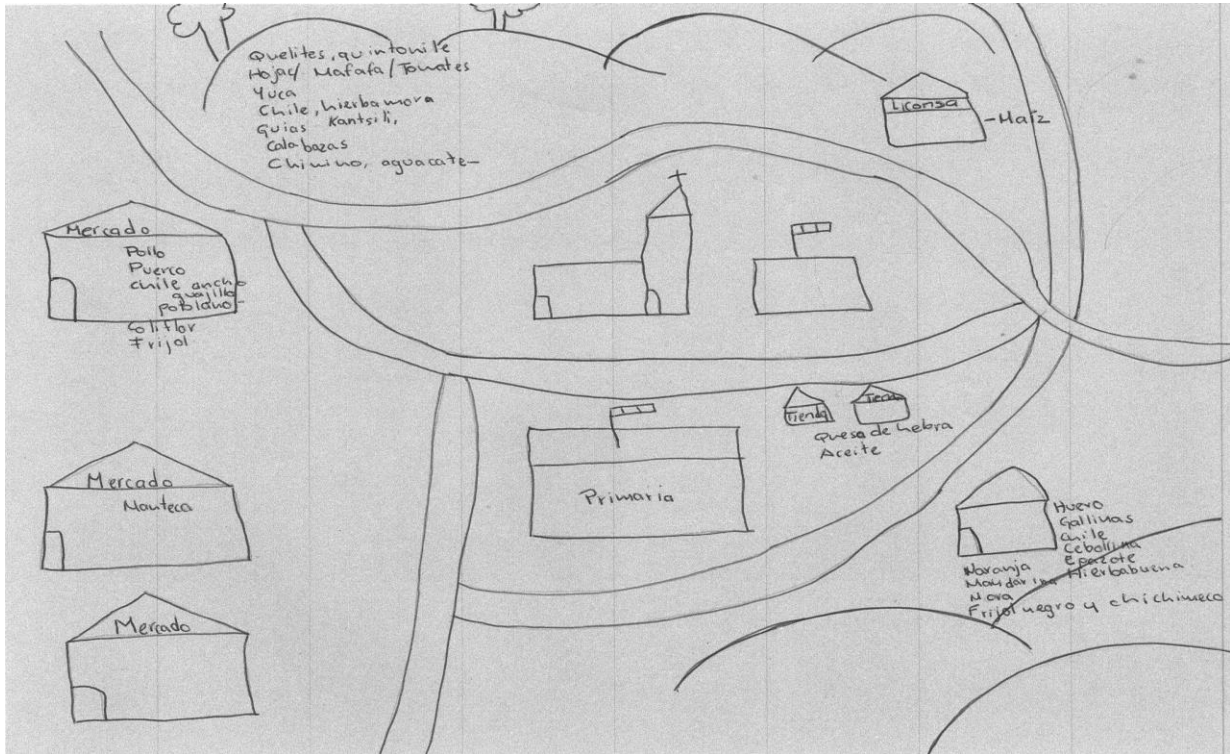 Quelites, quintonile
Hojas/ Mafafa/Tomates
Yuca
Chile, hierbamora
Guias Kantsili,
Calabazas
Chinino, aguacate-
Liconsa
-Maíz
Mercado
Pollo
Puerco
chile ancho
guajillo
poblano-
Coliflor
Frijol
Tienda
Tienda
Queso de hebra
Aceite
Primaria
Mercado
Manteca
Huevo
Gallinas
chile
Cebollina
Epazote
Hierbabuena
Naranja
Mandarina
Mora
Frijol negro y chichimeco
Mercado